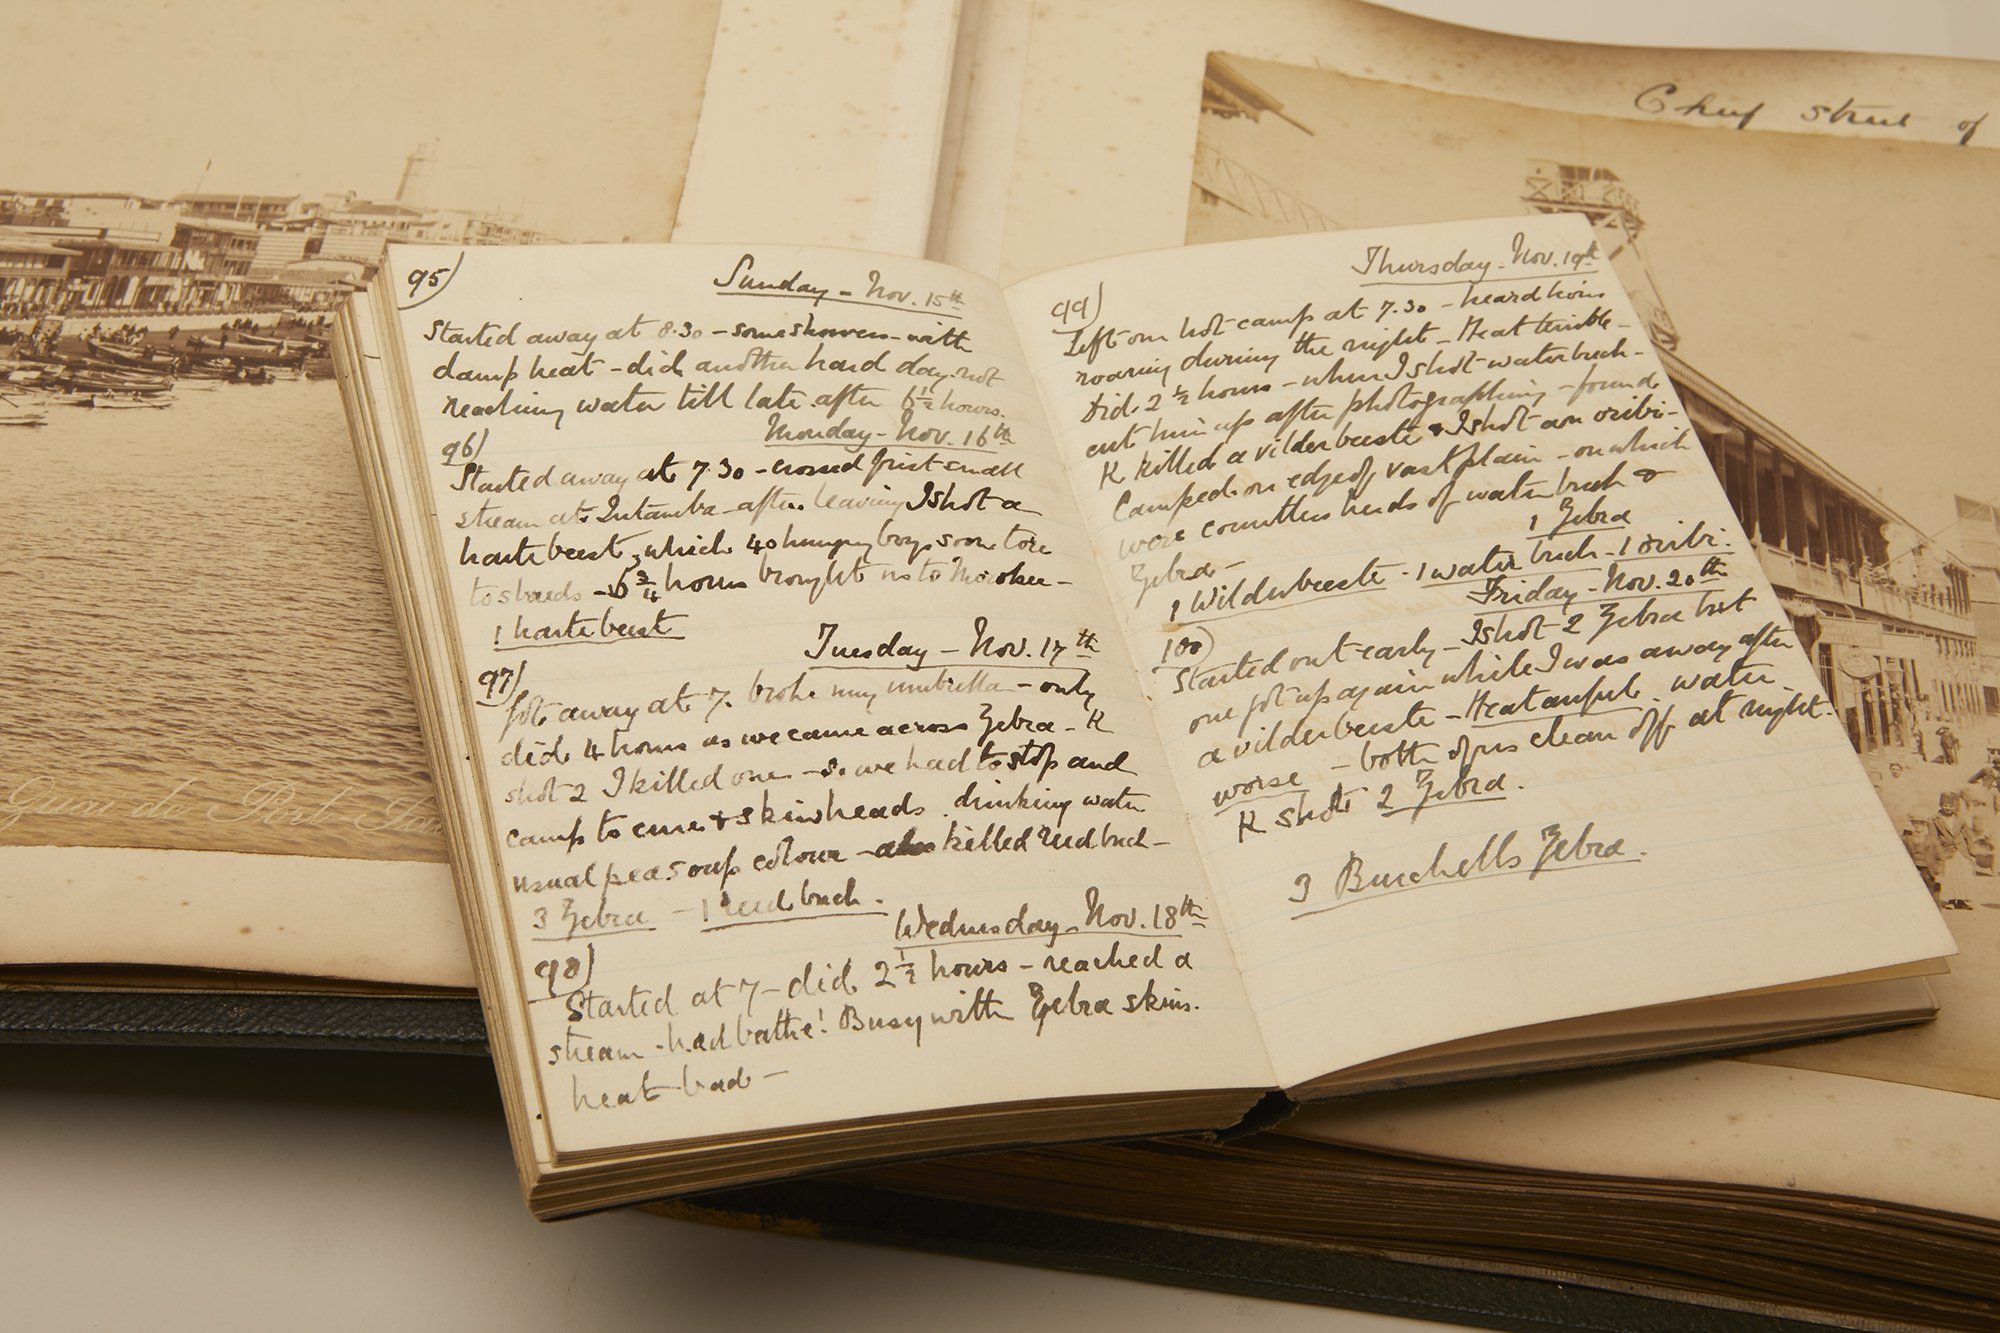 95)
Sunday - Nov. 15th
Started away at 8.30 - some showers - with
damp heat - did another hard day not
reaching water till late after 6½ hours.
Monday - Nov. 16th
96)
Started away at 7.30 - crossed first small
stream at - after leaving I shot a
hartebeest, which 40 hungry boys soon tore
to shreds - 6¾ hours brought us to
1 hartebeest
Tuesday - Nov. 17th
97)
Got away at 7. broke my umbrella - only
did 4 hours as we came across Zebra - K
shot 2 I killed one - so we had to stop and
camp to cure & skin heads. drinking water
usual pea soup colour - also killed reedbuck -
3 Zebra - 1 reedbuck.
Wednesday - Nov. 18th
98)
Started at 7 - did 2½ hours - reached a
stream - had bathe! Busy with Zebra skins.
heat bad -
Thursday - Nov. 19th
99)
Left our hot camp at 7.30 - heard lions
roaring during the night - Heat terrible -
Did 2½ hours - when I shot waterbuck -
cut him up after photographing - found
K killed a vilderbeeste & I shot an oribi -
Camped on edge of vast plain - on which
were countless herds of waterbuck &
Zebra -
1 Zebra
1 Wilderbeeste - 1 water buck - 1 oribi.
Friday - Nov. 20th
100)
Started out early - I shot 2 Zebra but
one got up again while I was away after
a vilderbeeste - Heat awful. water
worse - both of us clean off at night.
K shot 2 Zebra.
3 Burchells Zebra.
Chief street of